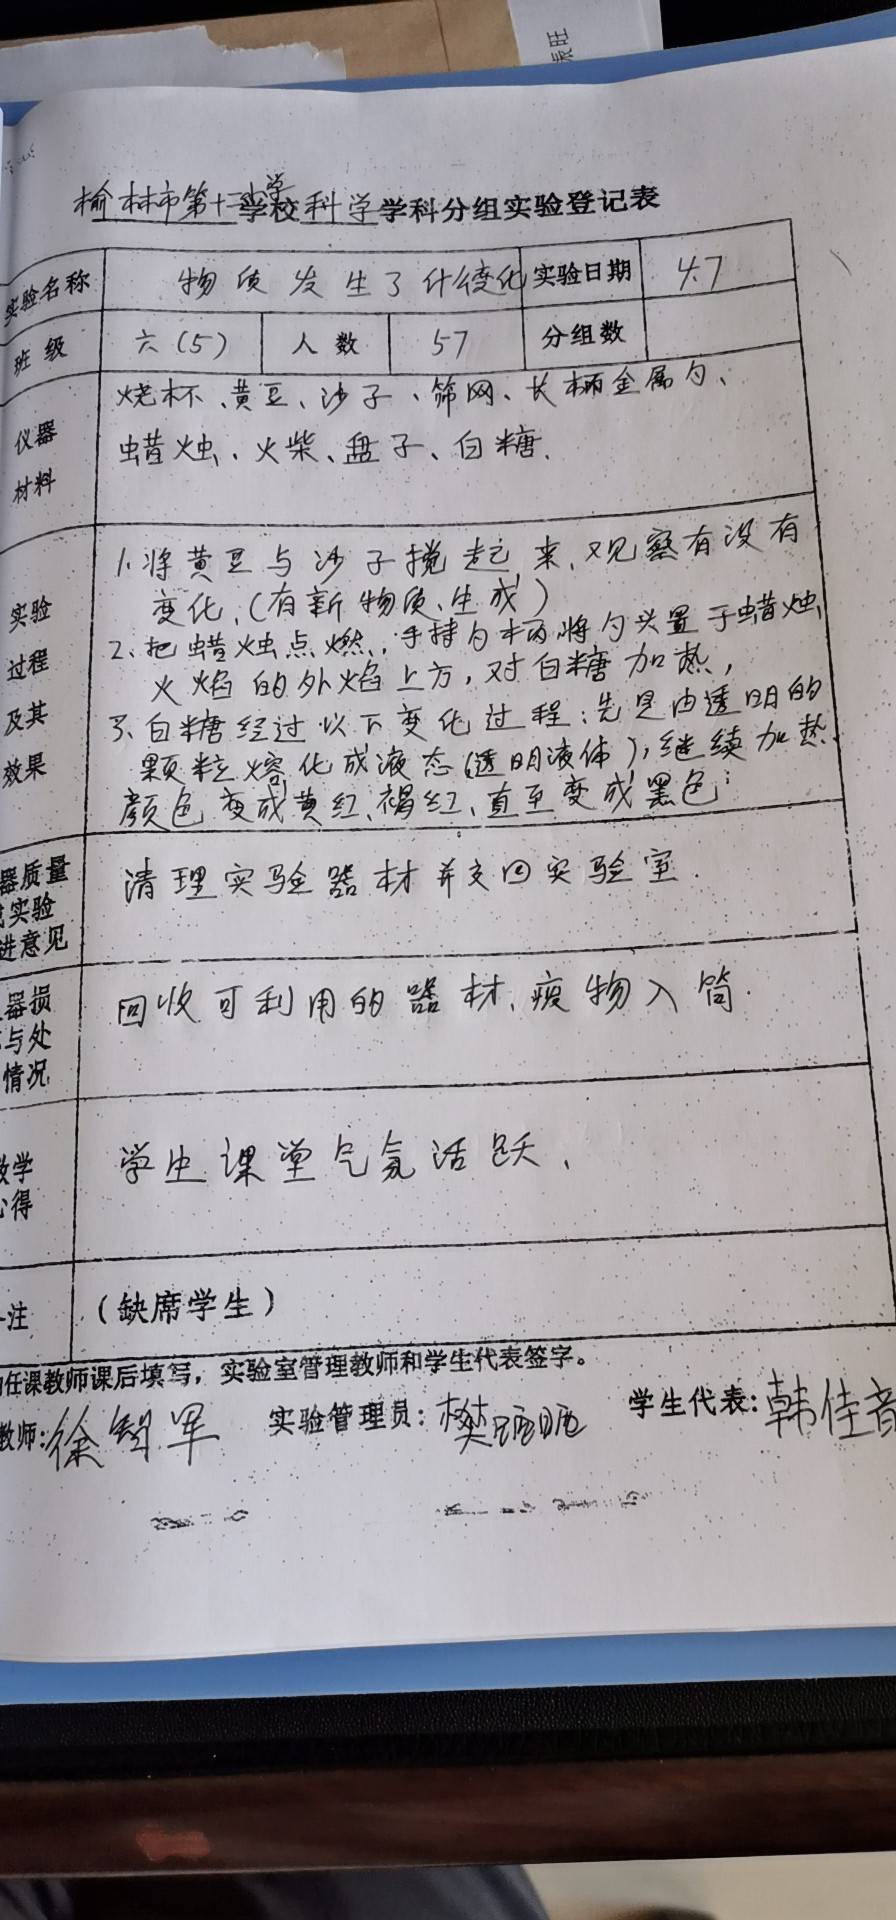 表旺
榆林市第十二小学学校科学学科分组实验登记表
实验名称 物质发生了什么变化 实验日期 4.7
班级 六(5) 人数 57 分组数
仪器
材料
烧杯、黄豆、沙子、筛网、长柄金属勺、
蜡烛、火柴、盘子、白糖.
实验
过程
及其
效果
1.将黄豆与沙子搅起来,观察有没有
变化,(有新物质生成)
2、把蜡烛点燃,手持勺柄将勺头置于蜡烛
火焰的外焰上方,对白糖加热,
3、白糖经过以下变化过程:先是由透明的
颗粒熔化成液态(透明液体),继续加热,
颜色变成黄红、褐红、直至变成黑色;
器质量
实验
进意见
清理实验器材并交回实验室.
器损
与处
情况
回收可利用的器材,废物入筒.
教学
心得
学生课堂气氛活跃、
注 (缺席学生)
任课教师课后填写,实验室管理教师和学生代表签字。
教师:徐智军 实验管理员:樊 学生代表:韩佳音